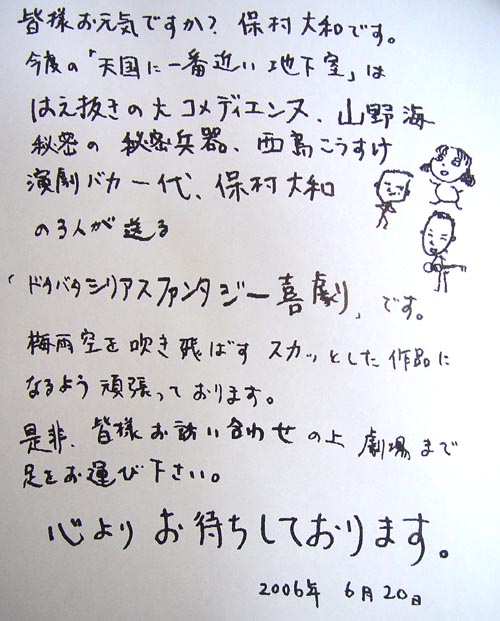 皆様お元気ですか? 保村大和です。
今度の「天国に一番近い地下室」は
はえ抜きの大コメディエンヌ、山野海
秘密の秘密兵器、西島こうすけ
演劇バカ一代、保村大和
の3人が送る
「ドタバタシリアスファンタジー喜劇」です。
梅雨空を吹き飛ばすスカッとした作品に
なるよう頑張っております。
是非、皆様お誘い合わせの上 劇場まで
足をお運び下さい。
心よりお待ちしております。
2006年 6月20日